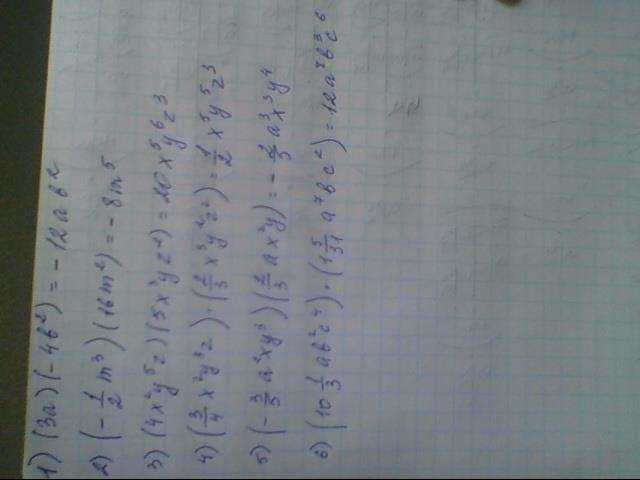 1) (3a)(-4b²) = -12ab²
2) (-1/2 m³)(16m²) = -8m⁵
3) (4x²y⁵z)(5x³yz²) = 20x⁵y⁶z³
4) (3/4 x²y³z)·(2/3 x³y²z²) = 1/2 x⁵y⁵z³
5) (-3/5 a²xy³)(2/3 ax²y) = -2/5 a³x³y⁴
6) (10 1/3 ab²c⁴)·(1 5/31 a⁷bc²) = 12a⁷b³c⁶